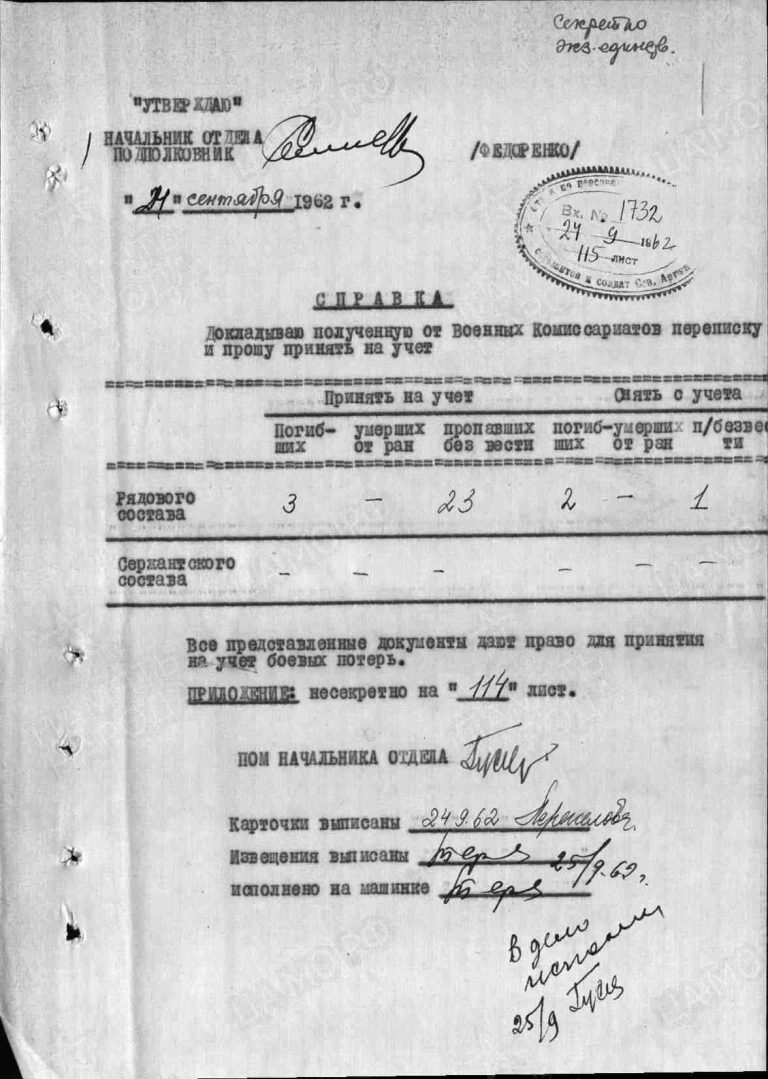 Секретно
экз. единств.
"УТВЕРЖДАЮ"
НАЧАЛЬНИК ОТДЕЛА
ПОДПОЛКОВНИК /ФЕДОРЕНКО/
"21" сентября 1962 г.
Вх. № 1732
24 9 1962
115 лист
сержантов и солдат Сов. Армии
СПРАВКА
Докладываю полученную от Военных Комиссариатов переписку
и прошу принять на учет
Принять на учет Снять с учета
Погиб- умерших пропавших погиб- умерших п/безвес
ших от ран без вести ших от ран ти
Рядового
состава 3 – 23 2 – 1
Сержантского
состава – – – – – –
Все представленные документы дают право для принятия
на учет боевых потерь.
ПРИЛОЖЕНИЕ: несекретно на "114" лист.
ПОМ НАЧАЛЬНИКА ОТДЕЛА
Карточки выписаны 24 9.62
Извещения выписаны 25/9.62г.
исполнено на машинке
В дело
25/9